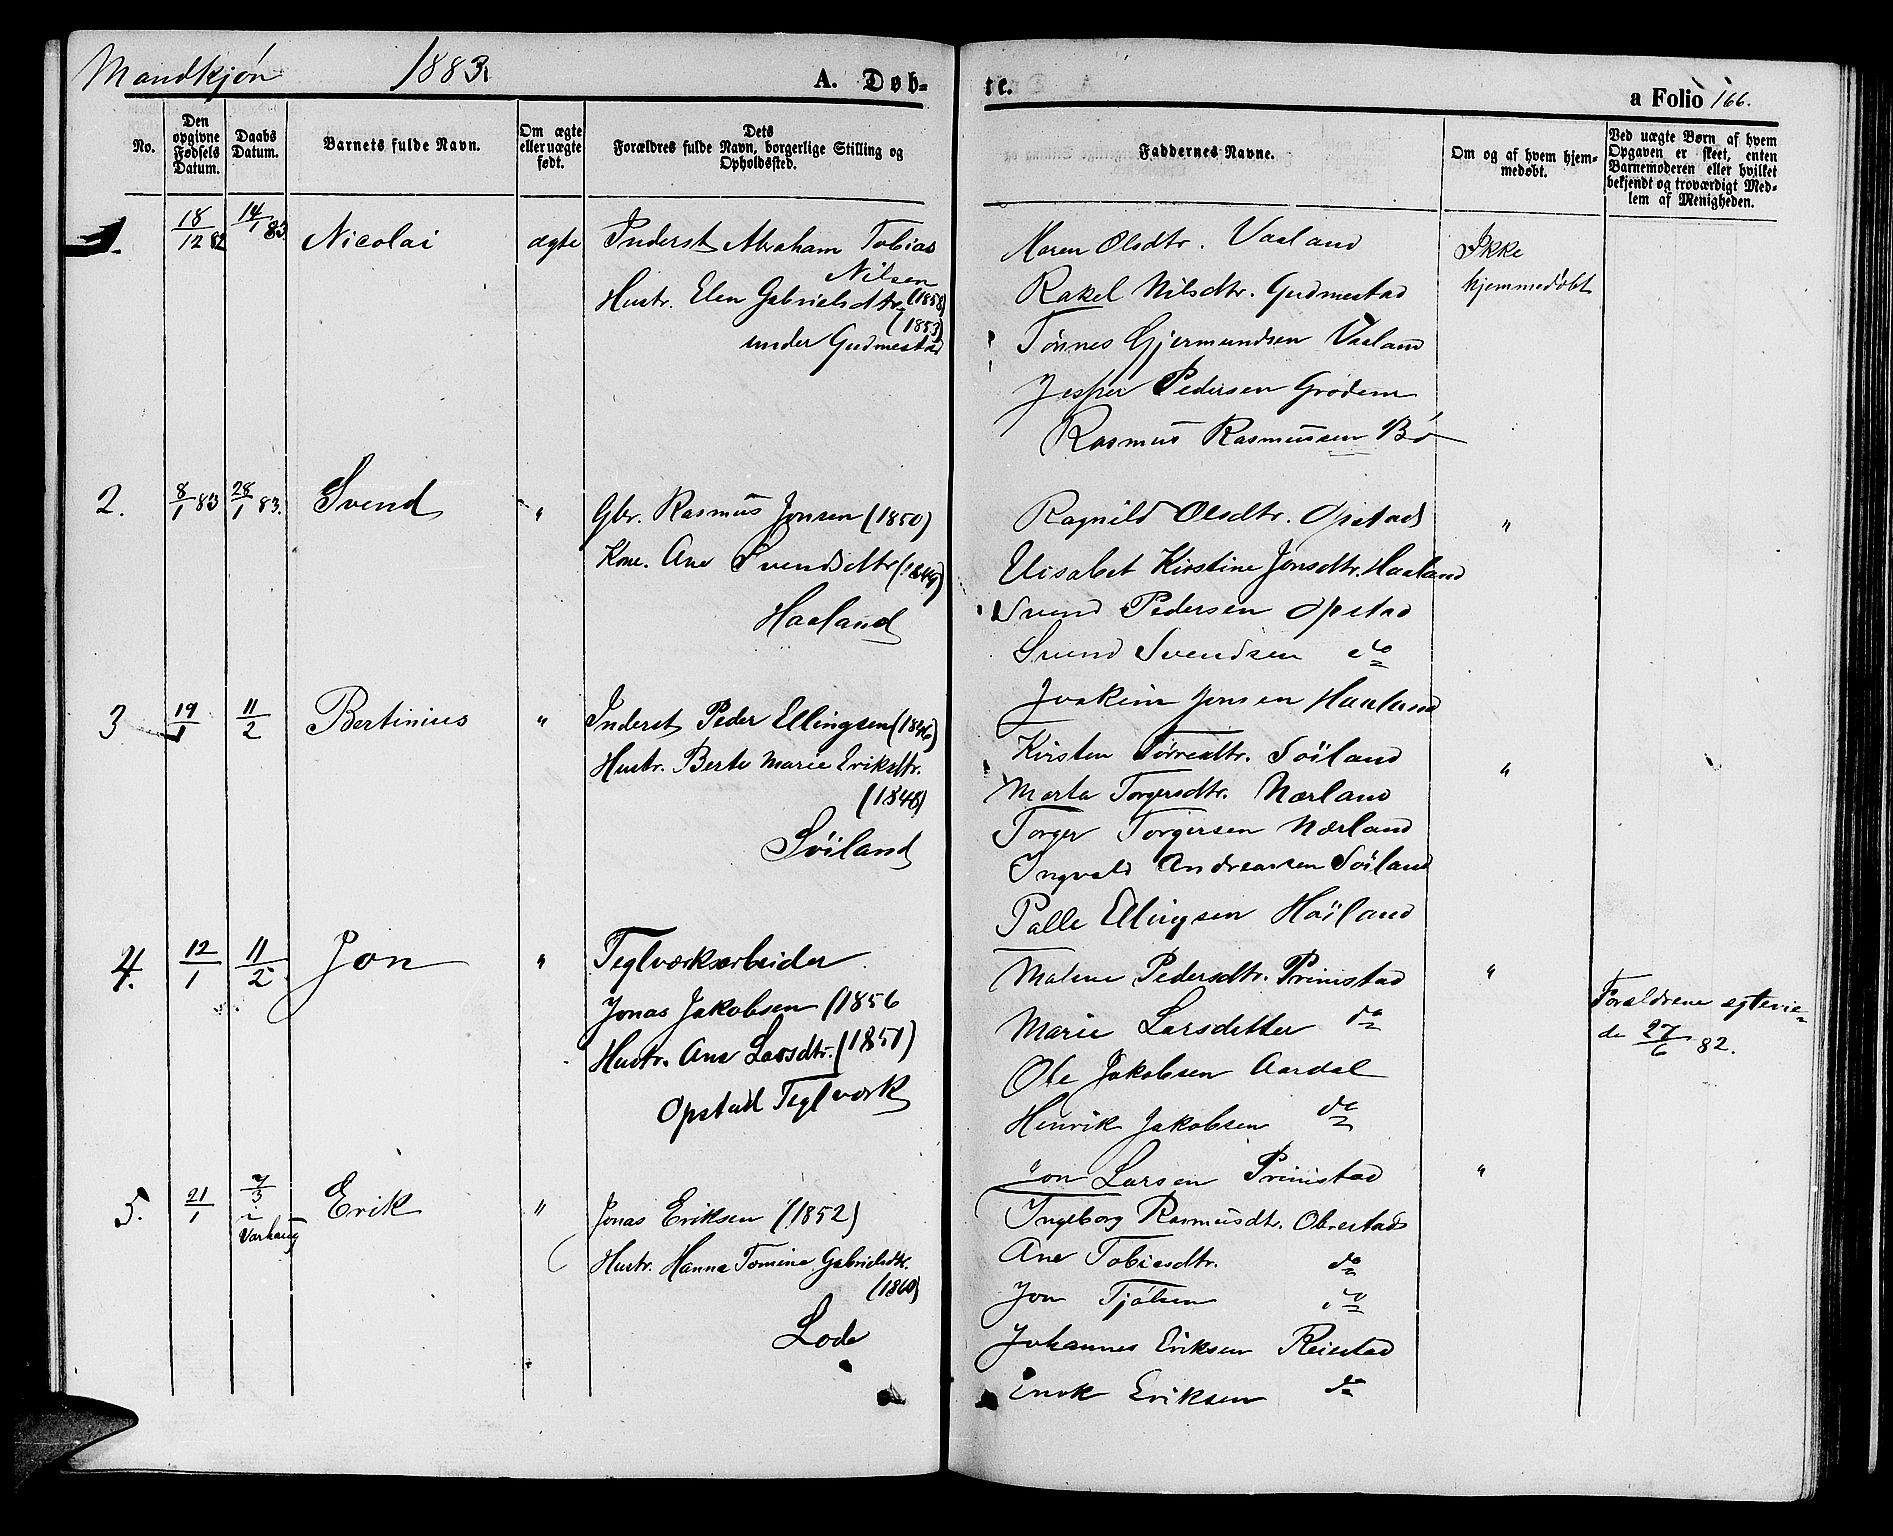 Mandkjøn 1883. A. Døb- te. a Folio 166.
No.
Den opgivne Fødsels Datum.
Daabs Datum.
Barnets fulde Navn.
Om ægte eller uægte født.
Dets Forældres fulde Navn, borgerlige Stilling og Opholdssted.
Faddernes Navne.
Om og af hvem hjem-
medøbt.
Ved uægte Børn af hvem
Opgaven er skeet, enten
Barnemoderen eller hvilket
bekjendt og troværdigt Med-
lem af Menigheden.
1. 18/12 82 14/1 83 Nicolai ægte
Inderst Abraham Tobias
Nilsen
Hustr. Elen Gabrielsdtr. (1858)
(1853)
under Gudmestad
Maren Olsdtr. Vaaland
Rakel Nilsdtr. Gudmestad
Tønnes Gjermundsen Vaaland
Jesper Pedersen Grødem
Rasmus Rasmussen Bø
Ikke
hjemmedøbt
2. 8/1 83 28/1 83. Svend "
Gbr. Rasmus Jonsen (1850)
Kone. Ane Svendsdtr (1849)
Haaland
Ragnild Olsdtr. Opstad "
Elisabet Kirstine Jonsdtr. Haaland
Svend Pedersen Opstad
Svend Svendsen do
Joakim Jonsen Haaland
3 19/1 11/2 Bertinius "
Inderst Peder Ellingsen (1846)
Hustr. Berte Marie Eriksdtr.
(1848)
Söiland
Kirsten Torresdtr. Söiland "
Marta Torgersdtr. Nærland
Torger Torgersen Nærland
Ingvald Andreassen Söiland
Palle Ellingsen Höiland
4. 12/1 11/2 Jon "
Teglværksarbeider
Jonas Jakobsen (1856
Hustr. Ane Larsdtr. (1851)
Opstad Teglværk
Malene Pedersdtr. Primstad "
Marie Larsdatter do
Ole Jakobsen Aardal
Henrik Jakobsen do
Jon Larsen Primstad
Foraldrene egtevie-
de 27/6 82.
5. 21/1 7/3 i Varhaug Erik "
Jonas Eriksen (1852)
Hustr. Hanna Tomine Gabrielsdtr.
(1860)
Lode
Ingeborg Rasmusdtr. Obrestad "
Ane Tobiasdtr. do
Jon Tjølsen do
Johannes Eriksen Reiestad
Enok Eriksen do